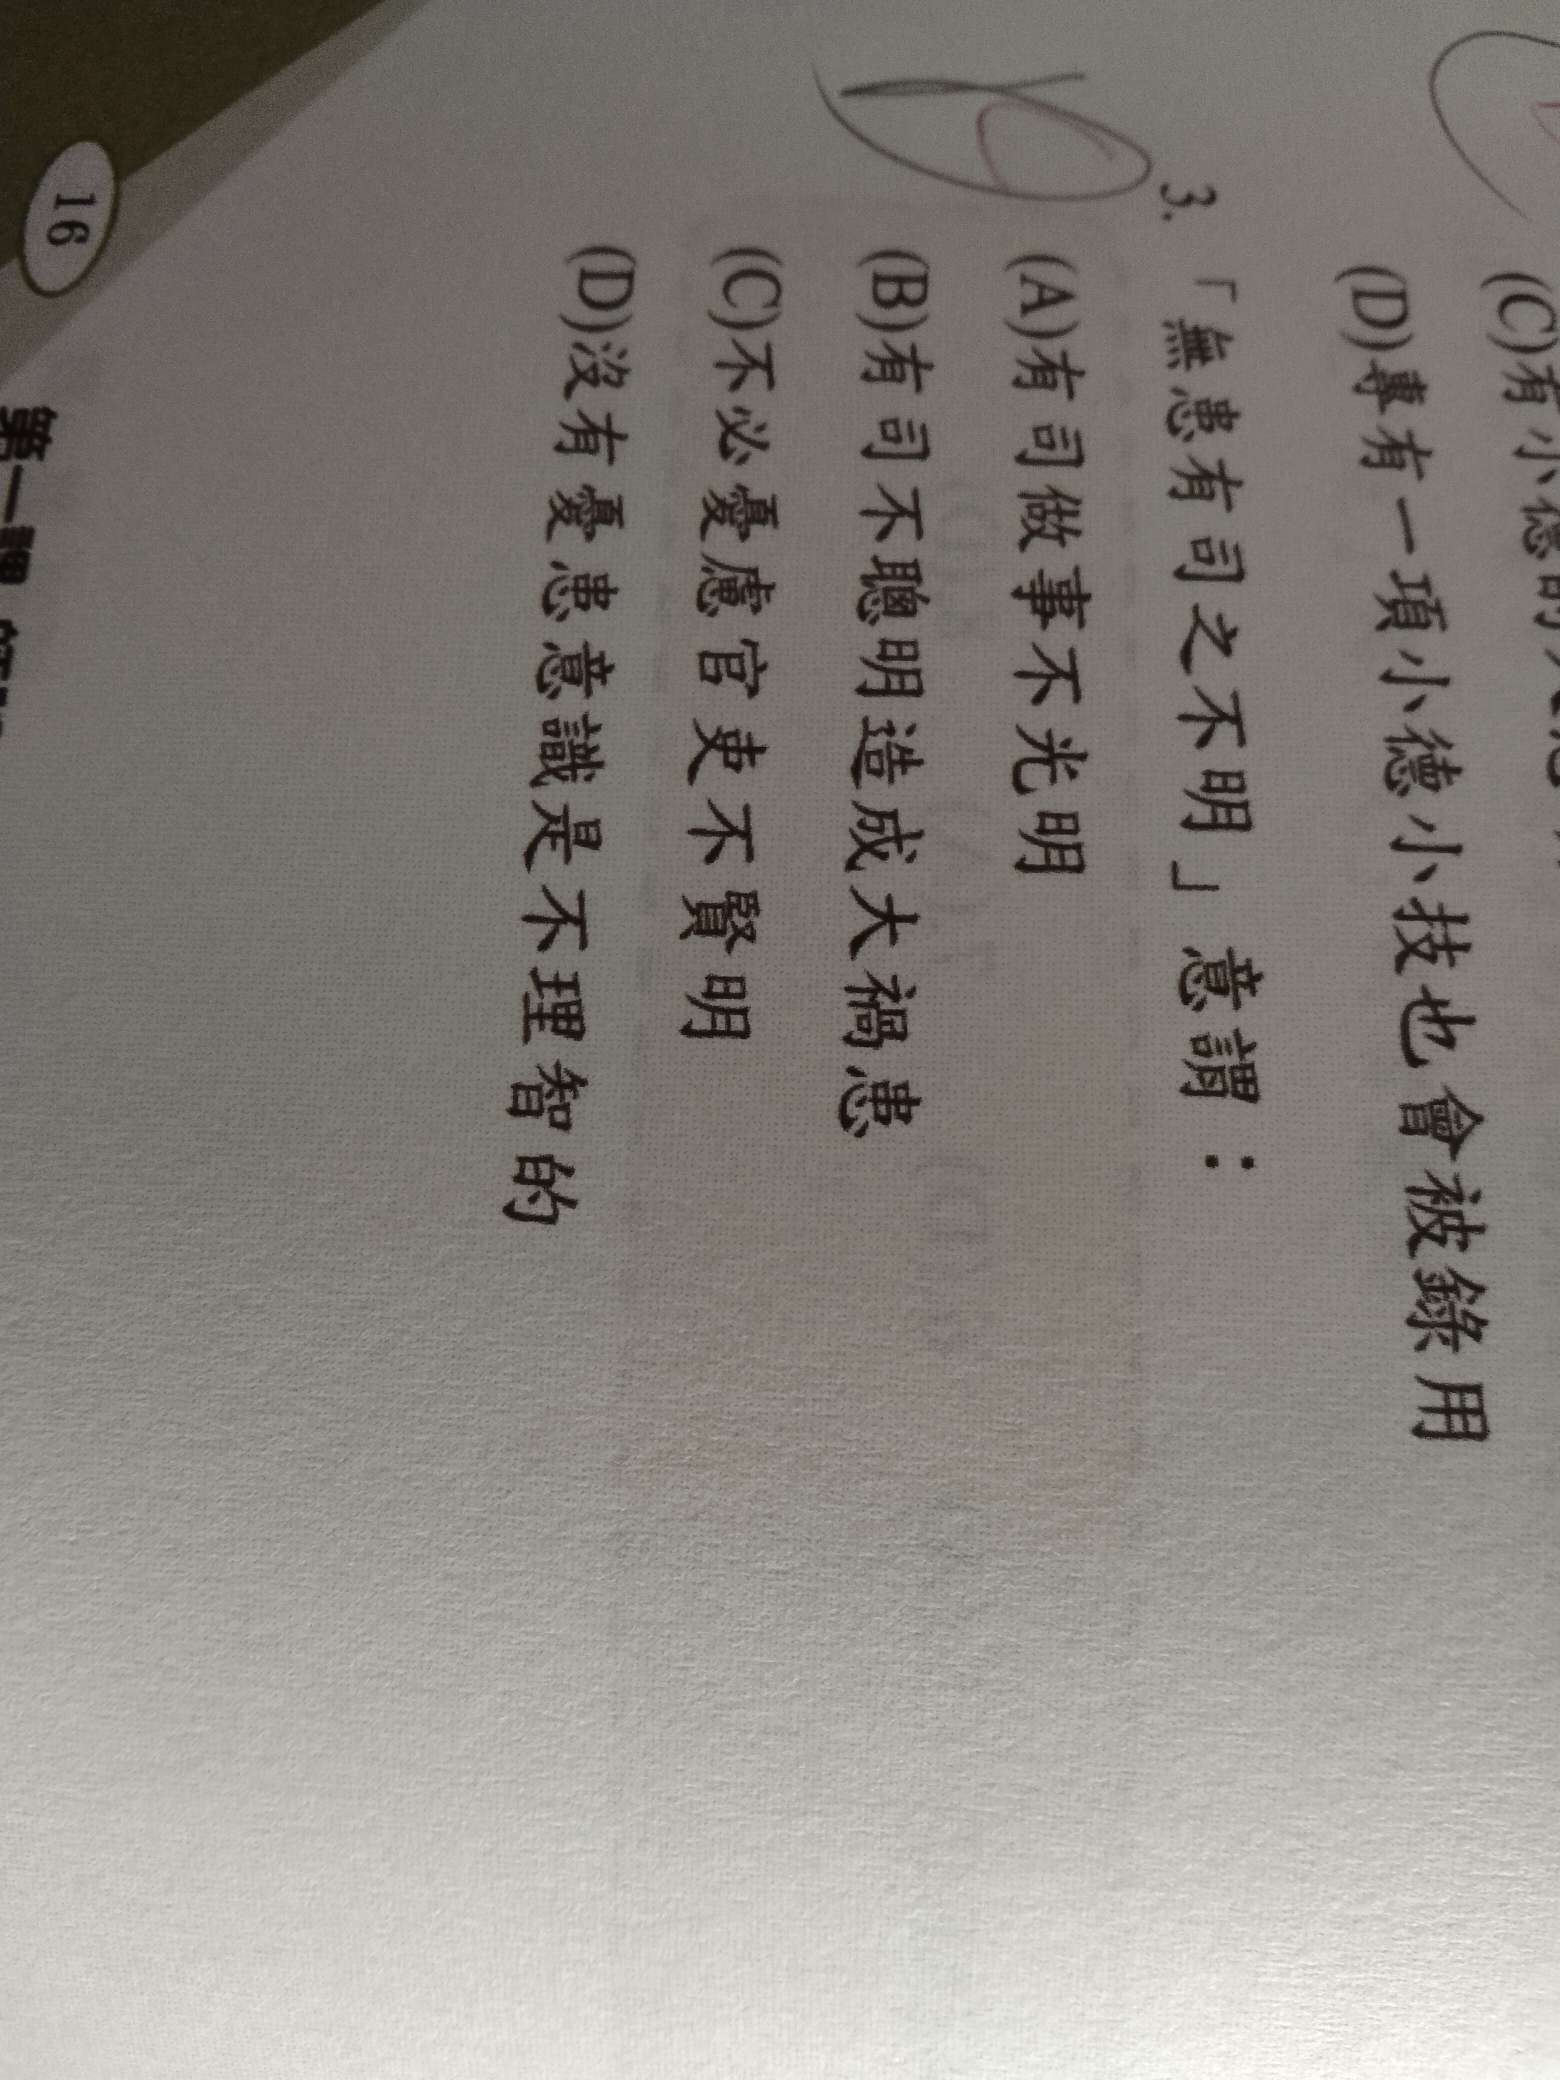 (C)有小德的人
(D)專有一項小德小技也會被錄用
3.「無患有司之不明」意謂：
(A)有司做事不光明
(B)有司不聰明造成大禍患
(C)不必憂慮官吏不賢明
(D)沒有憂患意識是不理智的
16
第一課